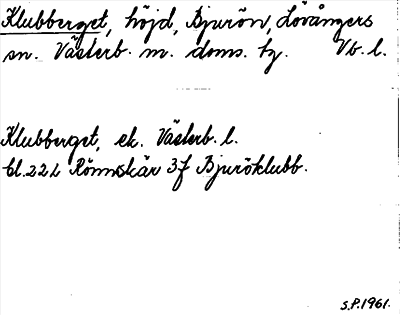 Klubberget, höjd, Bjurön, Lövångers
sn. Västerb. m. doms. hz. Vb. l.
Klubberget, ek. Västerb. l.
bl. 222 Rönnskär 37 Bjuröklubb.
S.P. 1961.